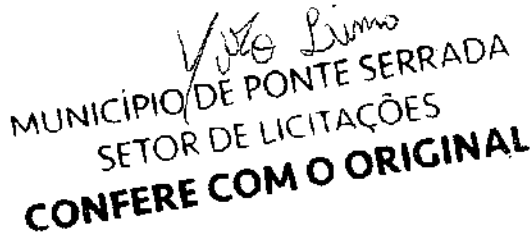 MUNICÍPIO DE PONTE SERRADA
SETOR DE LICITAÇÕES
CONFERE COM O ORIGINAL